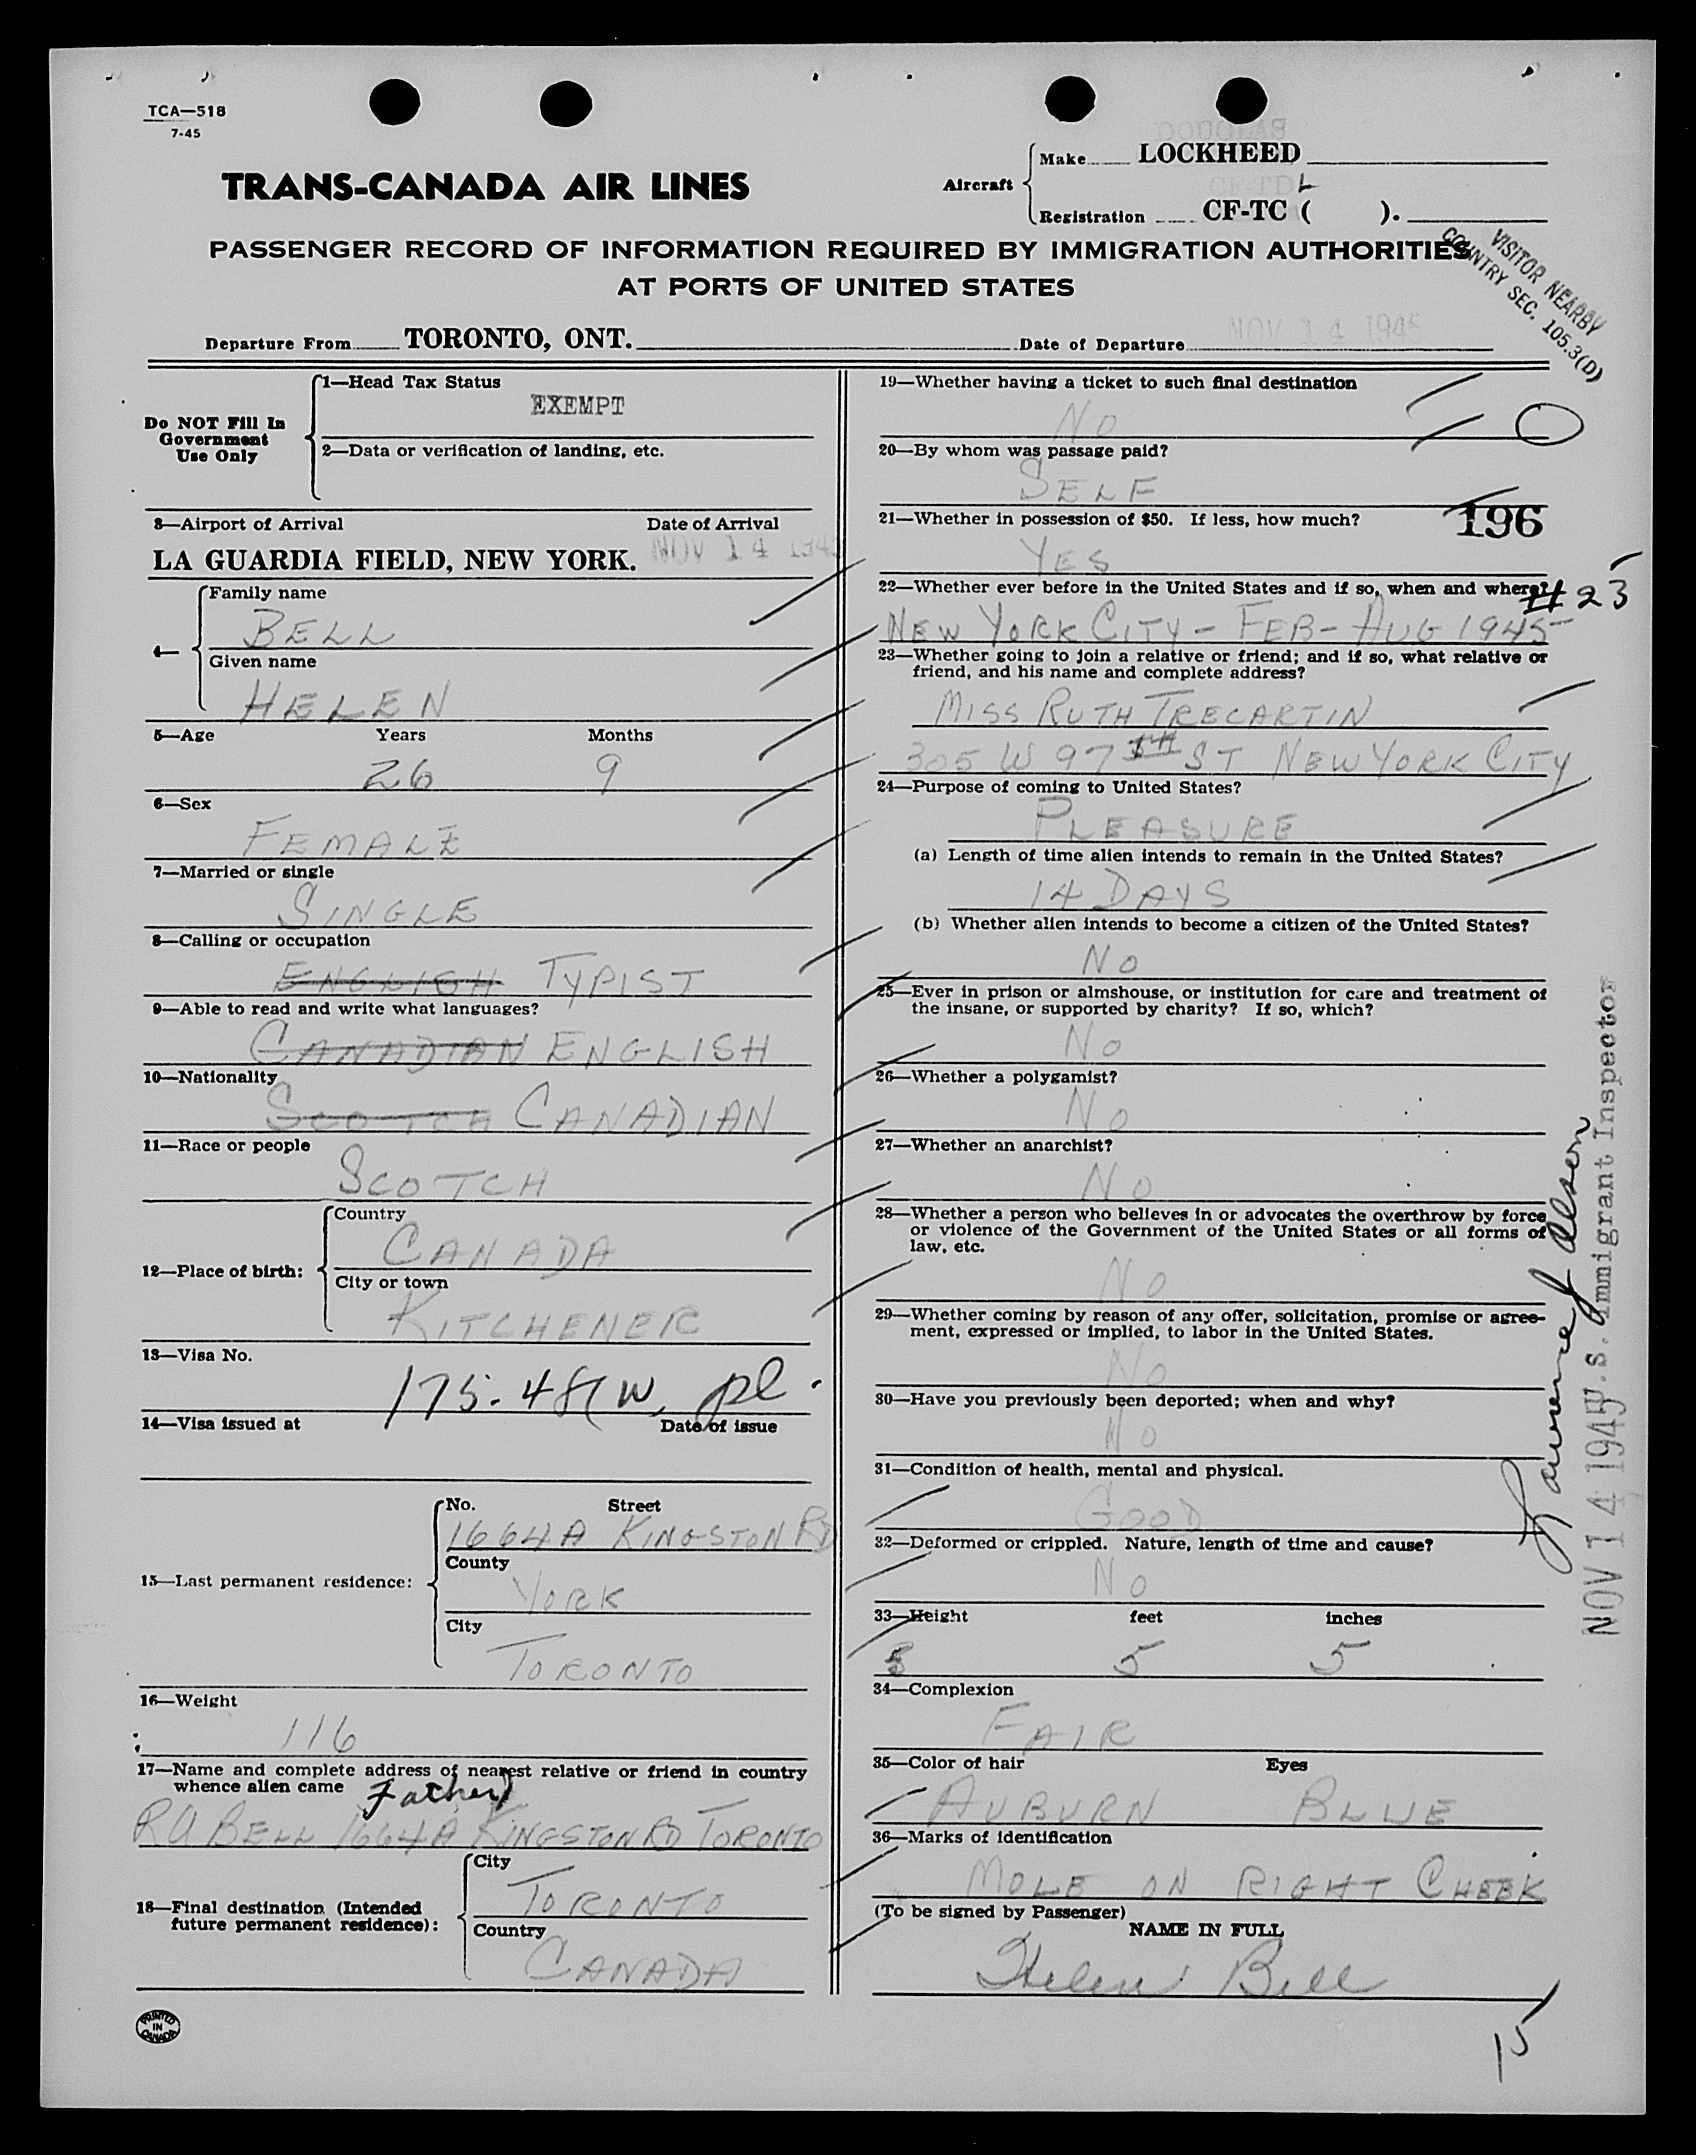 TCA—518
7-45
TRANS-CANADA AIR LINES
DOUGLAS
Aircraft
Make LOCKHEED
CF-TD L
Registration CF-TC ( ).
PASSENGER RECORD OF INFORMATION REQUIRED BY IMMIGRATION AUTHORITIES
AT PORTS OF UNITED STATES
VISITOR NEARBY
COUNTRY SEC. 105.3(D)
Departure From TORONTO, ONT. Date of Departure NOV 14 1945
Do NOT Fill In
Government
Use Only
1—Head Tax Status
EXEMPT
2—Data or verification of landing, etc.
3—Airport of Arrival Date of Arrival
LA GUARDIA FIELD, NEW YORK. NOV 14 1945
4—
Family name
BELL
Given name
HELEN
5—Age Years Months
26 9
6—Sex
FEMALE
7—Married or single
SINGLE
8—Calling or occupation
ENGLISH TYPIST
9—Able to read and write what languages?
CANADIAN ENGLISH
10—Nationality
SCOTCH CANADIAN
11—Race or people
SCOTCH
12—Place of birth:
Country
CANADA
City or town
KITCHENER
13—Visa No.
175.
14—Visa issued at Date of issue
15—Last permanent residence:
No. Street
1664A KINGSTON RD
County
YORK
City
TORONTO
16—Weight
116
17—Name and complete address of nearest relative or friend in country
whence alien came Father
RA BELL 1664A KINGSTON RD TORONTO
18—Final destination (Intended
future permanent residence):
City
TORONTO
Country
CANADA
PRINTED
IN
CANADA
19—Whether having a ticket to such final destination
NO
20—By whom was passage paid?
SELF
21—Whether in possession of $50. If less, how much?
196
YES
22—Whether ever before in the United States and if so, when and where?
# 23
NEW YORK CITY - FEB - AUG 1945
23—Whether going to join a relative or friend; and if so, what relative or
friend, and his name and complete address?
MISS RUTH TRECARTIN
305 W 97TH ST NEW YORK CITY
24—Purpose of coming to United States?
PLEASURE
(a) Length of time alien intends to remain in the United States?
14 DAYS
(b) Whether alien intends to become a citizen of the United States?
NO
25—Ever in prison or almshouse, or institution for care and treatment of
the insane, or supported by charity? If so, which?
NO
26—Whether a polygamist?
NO
27—Whether an anarchist?
NO
28—Whether a person who believes in or advocates the overthrow by force
or violence of the Government of the United States or all forms of
law, etc.
NO
29—Whether coming by reason of any offer, solicitation, promise or agree-
ment, expressed or implied, to labor in the United States.
NO
30—Have you previously been deported; when and why?
NO
31—Condition of health, mental and physical.
GOOD
32—Deformed or crippled. Nature, length of time and cause?
NO
33—Height feet inches
5 5
34—Complexion
FAIR
35—Color of hair Eyes
AUBURN BLUE
36—Marks of identification
MOLE ON RIGHT CHEEK
(To be signed by Passenger)
NAME IN FULL
Helen Bell
15
NOV 14 1945 U.S. Immigrant Inspector